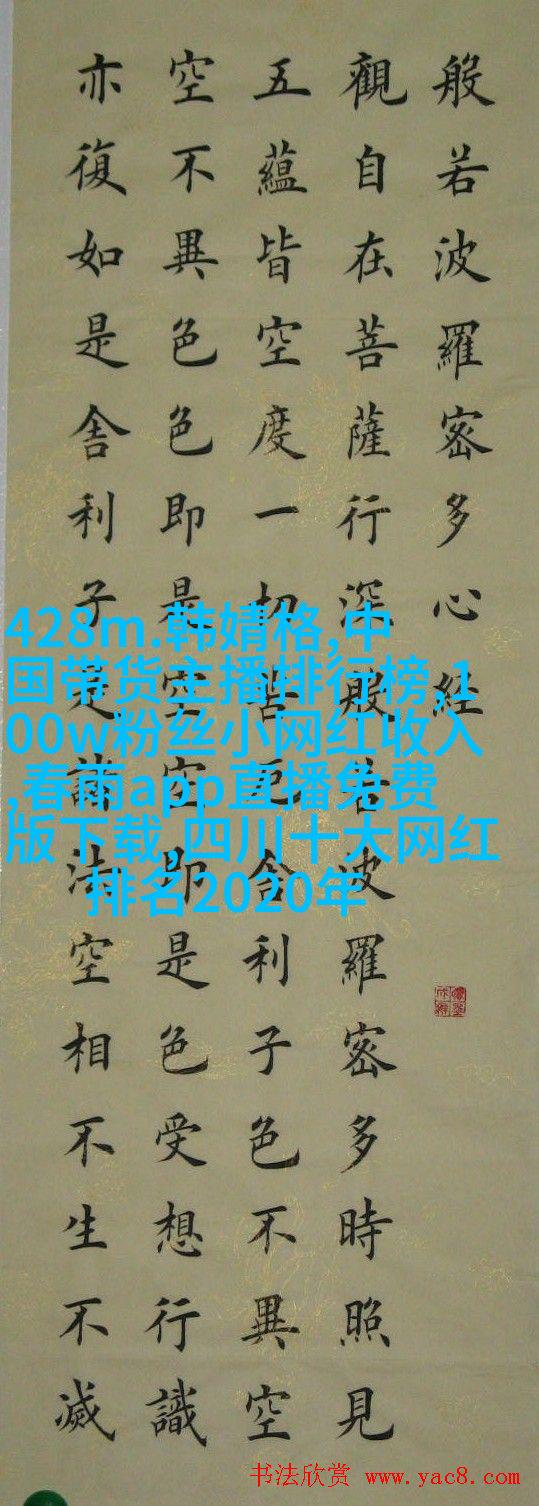 般若波羅密多心經
觀自在菩薩行深般若波羅密多時照見
五蘊皆空度一切苦厄舍利子色不異空
空不異色色即是空空即是色受想行識
亦復如是舍利子是諸法空相不生不滅
428m.韩婧格,中
国带货主播排行榜,1
00w粉丝小网红收入
,春雨app直播免费
版下载,四川十大网红
排名2020年
书法欣赏 www.yac8.com